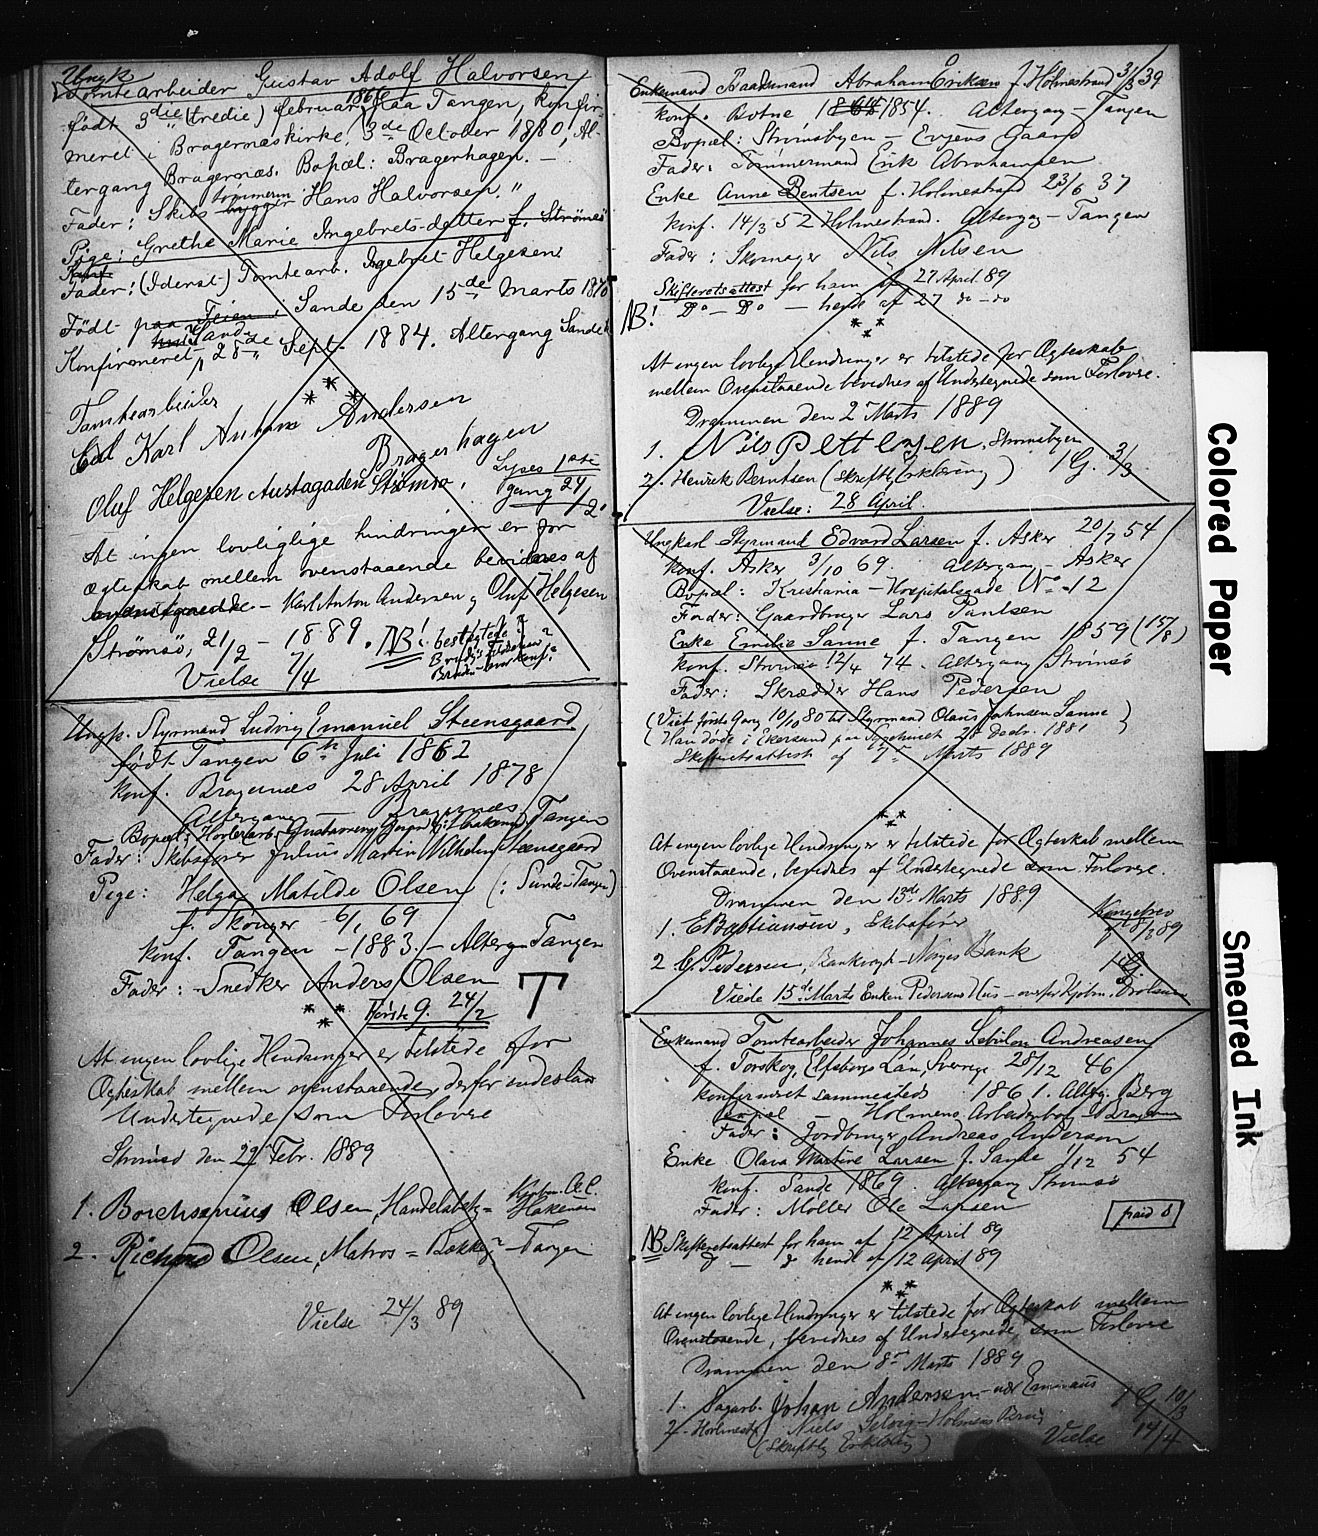 Ungk.
Tomtearbeider Gustav Adolf Halvorsen
født 3die (tredie) februar 1866 paa Tangen, konfir-
meret i Bragernæs kirke, 3de October 1880, Al-
tergang Bragernæs. Bopæl: Bragerhagen. —
Fader: Skibstømmerm Hans Halvorsen.
Pige: Grethe Marie Ingebrets-datter f. Strømsø
Fader: (Iderst) Tomtearb. Ingebret Helgesen
Født paa i Sande den 15de Marts 1870
Konfirmeret Sande 28de Sept. 1884. Altergang Sande
Tomtearbeider
Karl Anton Andersen
Bragerhagen
Oluf Helgesen Austagaden Strømsø.
Lyses 1ste
gang 24/2
At ingen lovliglige hindringer er for
ægteskab mellem ovenstaaende bevidnes af
Karl Anton Andersen og Oluf Helgesen
Strømsø, 21/2 – 1889. NB!
Vielse 7/4
Ungk. Styrmand Ludvig Emanuel Steensgaard
født Tangen 6te Juli 1862
konf. Bragernæs 28 April 1878
Altergang — Bragernæs
Bopæl: Tangen
Fader: Skibsfører Julius Martin Wilhelm Steensgaard
Pige: Helga Matilde Olsen (: Sund i Tangen)
f. Skoger 6/1 69
konf. Tangen – 1883. – Alterg. Tangen
Fader: Snedker Anders Olsen
Første G. 24/2
T
At ingen lovlige Hindringer er tilstede for
Ægteskab mellem ovenstaaende, derfor indestaa
Undertegnede som Forlovere
Strømsø den 22 Febr. 1889
1. Borchsenius Olsen, Handelsbetj. =
2. Richard Olsen, Matros = Tangen
Vielse 24/3 89
Enkemand Baadsmand Abraham Eriksen f. Holmestrand 31/3 39
konf. Botne 1864 1854. Altergang – Tangen
Bopæl: Strømsbyen – Evjens Gaard
Fader: Tømmermand Erik Abrahamsen
Enke Anne Bentsen f. Holmestrand 23/6 37
konf. 14/3 52 Holmestrand. Altergang – Tangen
Fader: Skomager Nils Nilsen
Skifteretsattest for ham af 27 April 89
NB! Do – Do — hende af 27 do – do
At ingen lovlige Hindringer er tilstede for Ægteskab
mellem Ovenstaaende bevidnes af Undertegnede som Forlovere.
Drammen den 2 Marts 1889
1. Nils Pettersen, Strømsbyen
2. Henrik Berntsen (Skriftlig Erklæring) 1 G. 3/3
Vielse: 28 April
Ungkarl Styrmand Edvard Larsen f. Asker 20/7 54
konf. Asker 3/10 69. Altergang – Asker
Bopæl: Kristiania – Hospitalsgade No 12
Fader: Gaardbruger Lars Paulsen
Enke Emilie Sanne f. Tangen 1859 (15/8)
konf. Strømsø 12/4 74. Altergang Strømsø
Fader: Skrædder Hans Pedersen
(Viet første Gang 10/10 80 til Styrmand Olaus Johnsen Sanne)
(Han døde i Ekersund paa Sygehuset 28 1881)
Skifteretsattest af 7de Marts 1889
At ingen lovlige Hindringer er tilstede for Ægteskab mellem
Ovenstaaende, bevidnes af Undertegnede som Forlovere.
Drammen den 13de Marts 1889
Kongebrev
1. E Bastiansen, Skibsfører 8/3 89
2 C. Pedersen, Norges Bank
Viede 15de Marts Enken Pedersens Hus –
Enkemand Tomtearbeider Johannes Sebulon Andreasen
f. Torskog, Elfsborgs Län, Sverige 28/12 46
konfirmeret sammesteds 1861. Alterg. Berg
Bopæl – Holmens Arbeiderbolig
Fader: Jordbruger Andreas Anderson
Enke Olava Martine Larsen f. Sande 1/12 54
konf. Sande 1869. Altergang Strømsø
Fader: Møller Ole Larsen
NB Skifteretsattest for ham af 12 April 89
do — do hende af 12 April 89
At ingen lovlige Hindringer er tilstede for Ægteskab mellem
Ovenstaaende, bevidnes af Undertegnede som Forlovere
Drammen den 8de Marts 1889
1. Sagarb. Johan Andersen – Emmaus 1 G. 10/3
2. Niels – Holmens Brug
(Skriftlig Erklæring) Vielse 14/4
Colored Paper
Smeared Ink